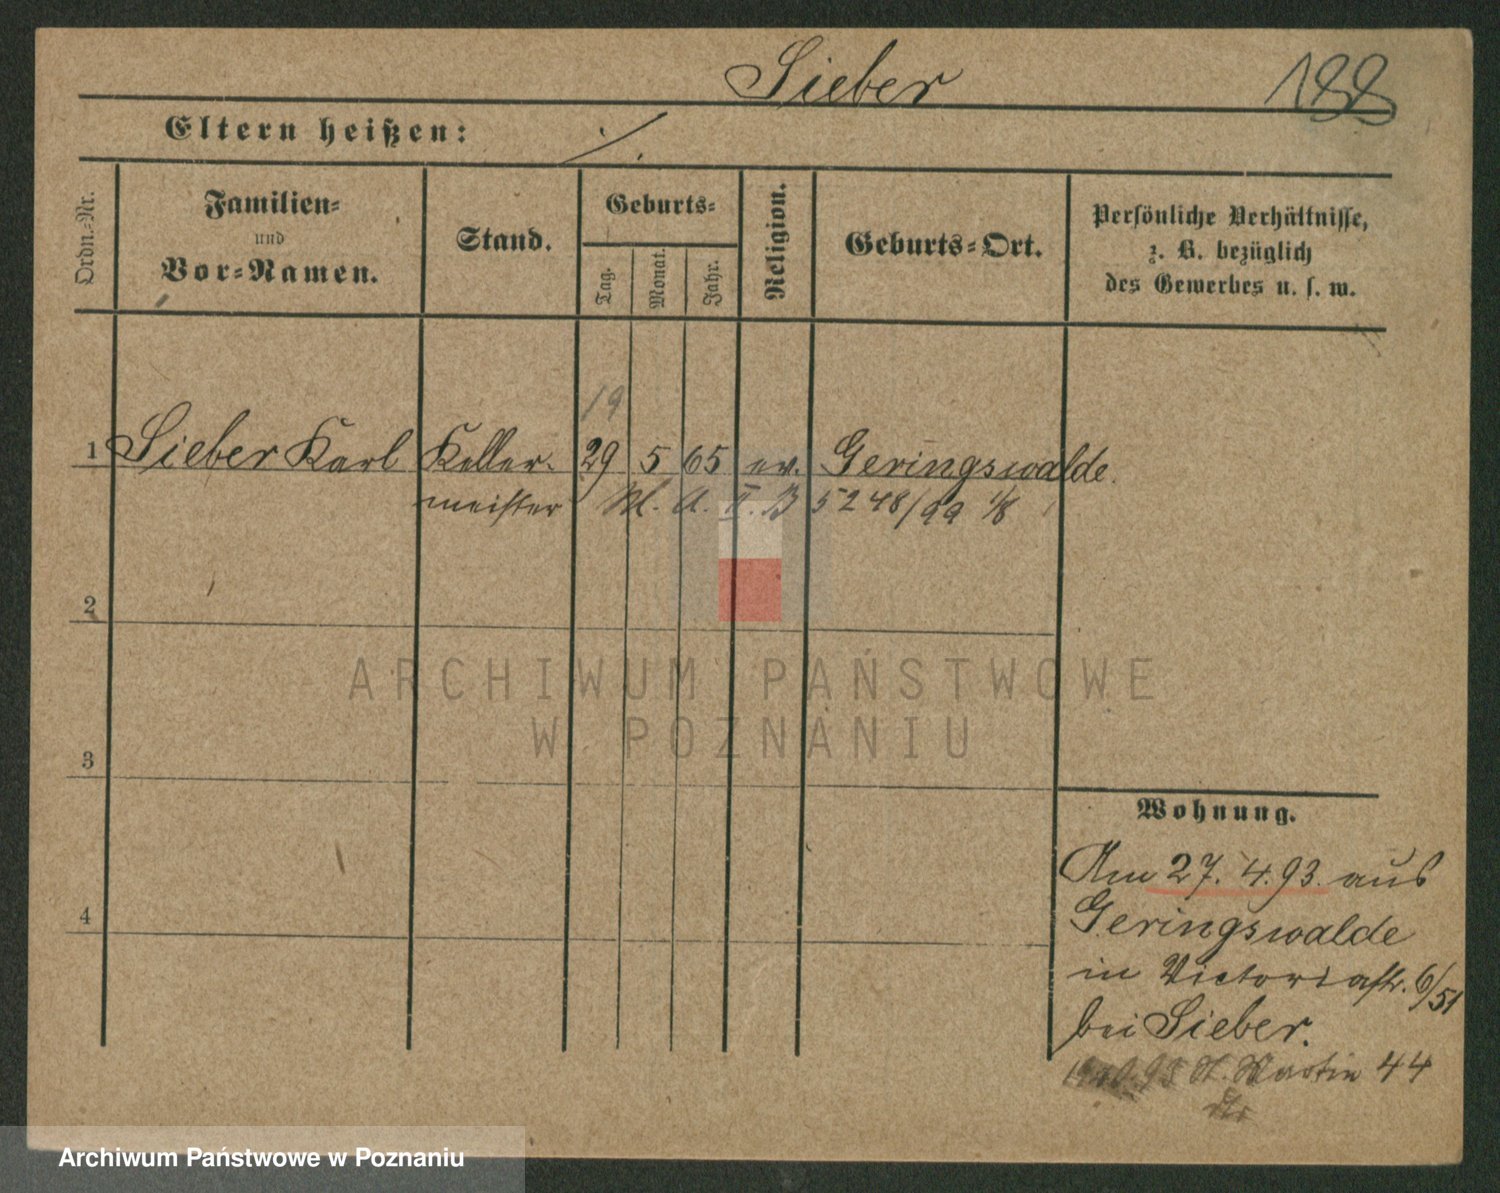 Sieber 188
Eltern heißen: ./.
Ordn.-Nr.
Familien-
und
Vor-Namen.
Stand.
Geburts-
Tag.
Monat.
Jahr.
Religion.
Geburts-Ort.
Persönliche Verhältnisse,
z. B. bezüglich
des Gewerbes u. s. w.
19
1 Sieber Karl Keller- 29 5 65 ev. Geringswalde.
meister M. A. II. B 5248/99 1/8
2
3
4
ARCHIWUM PAŃSTWOWE
W POZNANIU
Wohnung.
Am 27. 4. 93. aus
Geringswalde
in Victoriastr. 6/51
bei Sieber.
93 St. Martin 44
Archiwum Państwowe w Poznaniu